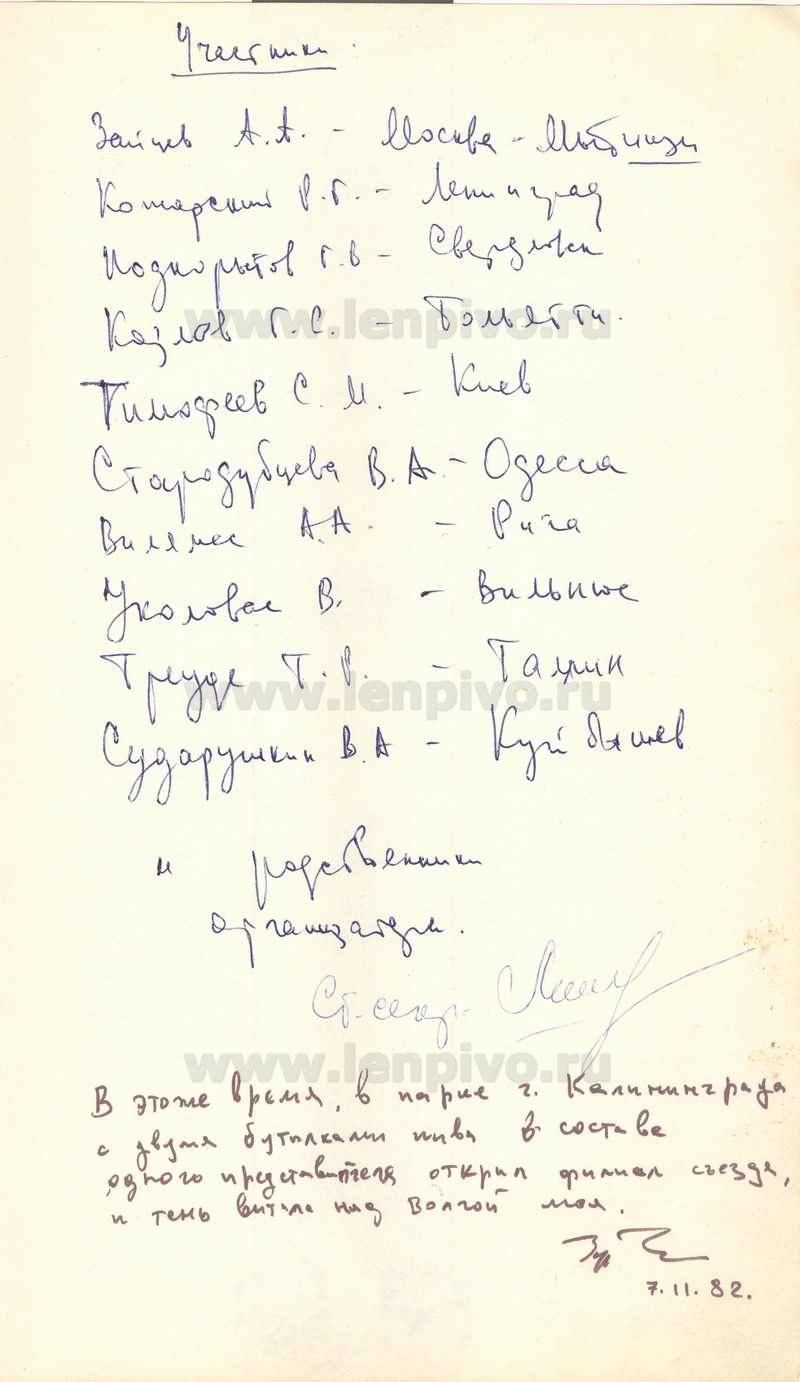 Участники.
Зайцев А.А. - Москва - Мытищи
Комарский Р.Г. - Ленинград
Подкорытов Г.В - Свердловск
www.lenpivo.ru
Козлов Г.С. - Тольятти.
Тимофеев С.М. - Киев
Стародубцева В.А. - Одесса
Вилямес А.А. - Рига
Уколовас В. - Вильнюс
Треуде Т.Р. - Таллин
www.lenpivo.ru
Сударушкин В.А - Куйбышев
и родственники
организации.
Ст. секр.
www.lenpivo.ru
В этоже время, в парке г. Калининграда
с двумя бутылками пива в составе
одного представителя открыл филиал съезда,
и тень витала над Волгой моя.
7.11.82.